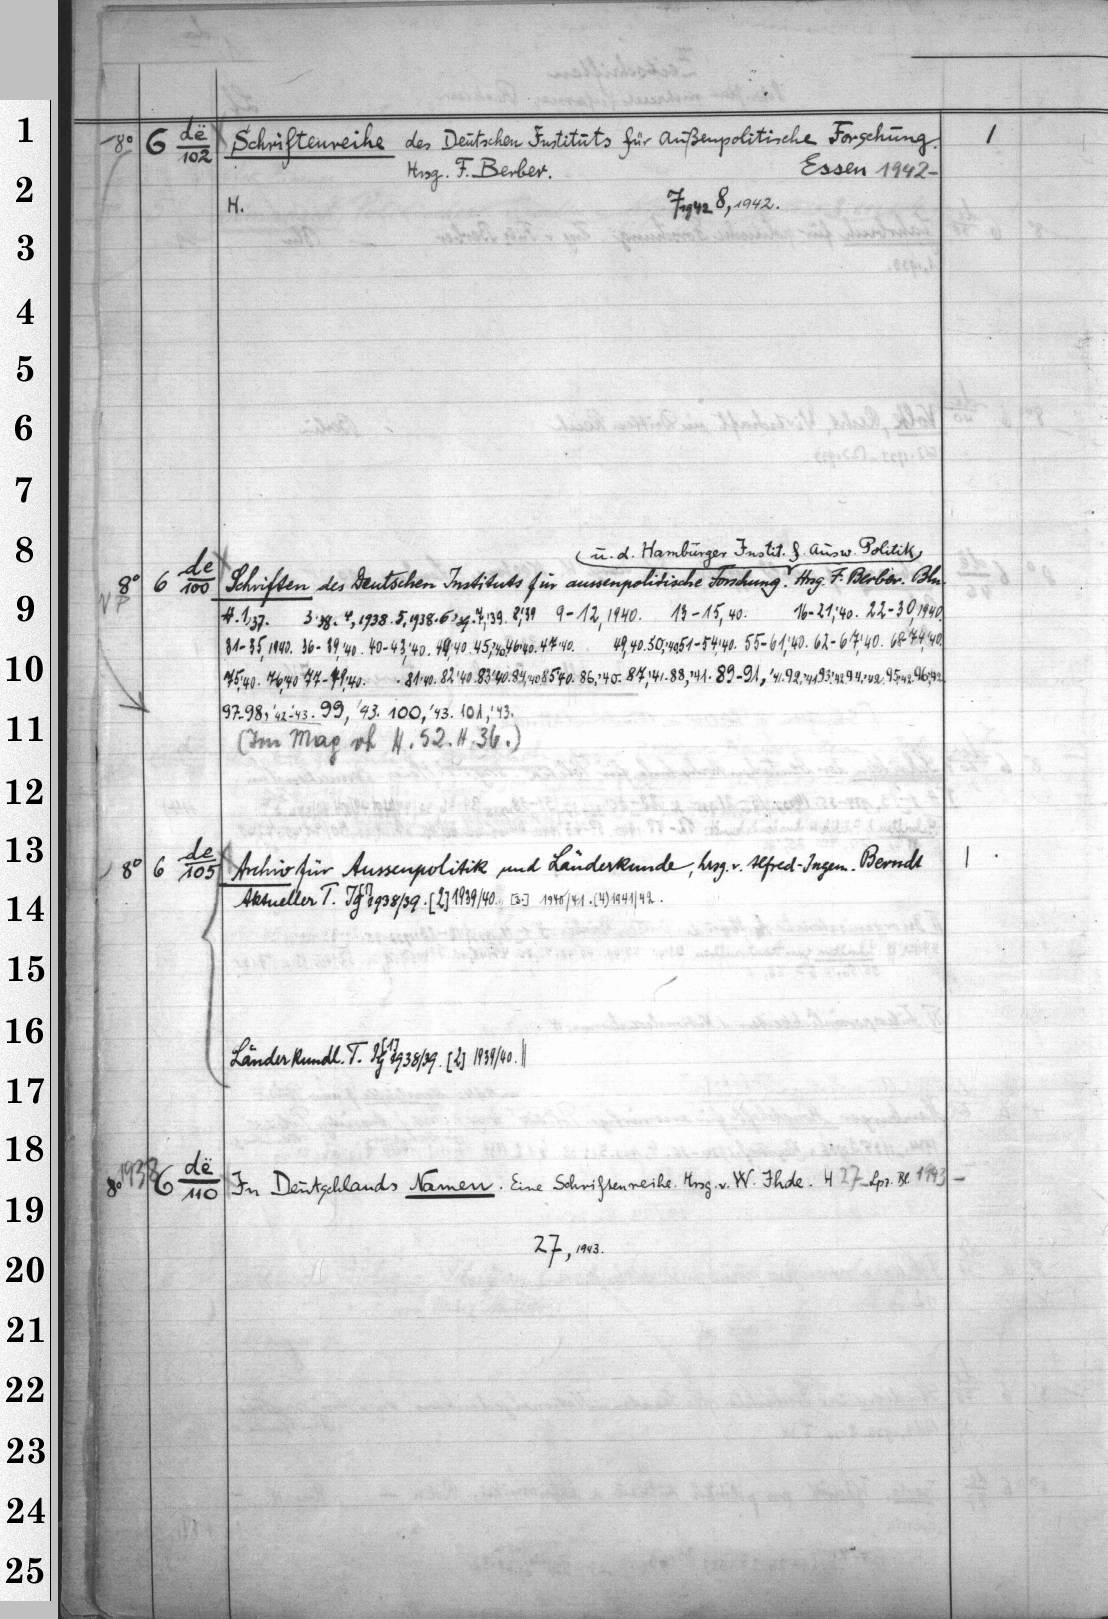 1
8° 6 dë/102 Schriftenreihe des Deutschen Instituts für Außenpolitische Forschung. 1
Hrsg. F. Berber. Essen 1942-
2
H. 7,1942 8,1942.
3
4
5
6
7
8
(u. d. Hamburger Instit. f. ausw. Politik)
8° 6 de/100 Schriften des Deutschen Instituts für aussenpolitische Forschung. Hrsg. F. Berber. Bln.
9
H. 1,37. 3,38. 4,1938. 5,1938. 6,39. 7,'39. 8,'39 9-12, 1940. 13-15, 40. 16-21,'40. 22-30,1940
31-35, 1940. 36-39,'40. 40-43,'40. 44,'40. 45,'40 46,'40. 47,'40. 49,40. 50,'40 51-54,'40. 55-61,'40. 62-67,'40. 68-74,'40.
10
75,'40. 76,'40 77-79,'40. 81,'40. 82,'40. 83,'40. 84,'40 85,'40. 86,'40. 87,'41. 88,'41. 89-91,'41. 92,'41 93,'42 94,'42. 95,'42. 96,'42
97-98,'42-'43. 99, '43. 100,'43. 101,'43.
11
(Im Mag vh H. 52. H. 36.)
12
13
8° 6 de/105 Archiv für Aussenpolitik und Länderkunde, hrsg. v. Alfred-Ingem. Berndt 1
14
Aktueller T. Jg [1] 1938/39. [2] 1939/40. [3.] 1940/41. (4) 1941/42.
15
16
Länderkundl. T. Jg [1] 1938/39. [2] 1939/40. ||
17
18
8° 1938 6 dë/110 In Deutschlands Namen. Eine Schriftenreihe. Hrsg. v. W. Ihde. H 27- Lpz. Bl. 1943 -
19
27, 1943.
20
21
22
23
24
25